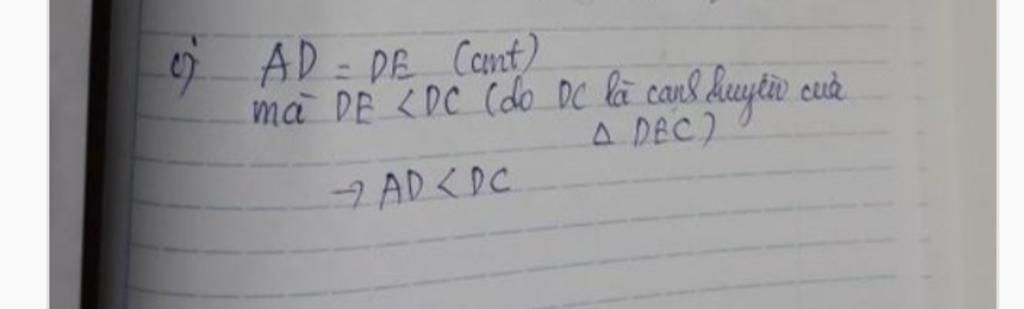 c) AD = DE (cmt)
mà DE < DC (do DC là cạnh huyền của
Δ DEC)
→ AD < DC